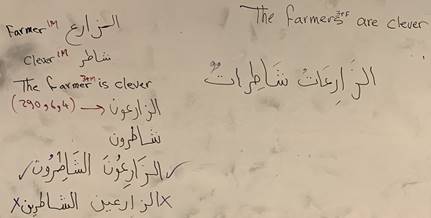 Farmer 1M الزارع
Clever 1M شاطر
The Farmer 3+M is clever
(2906,4) → الزارعون
شاطرون
✓الزَارِعُونَ الشَاطِرُون✓
X الزارعين الشاطرين X
The Farmers 3+F are clever
الزَارِعَاتْ شَاطِرَاتٌ